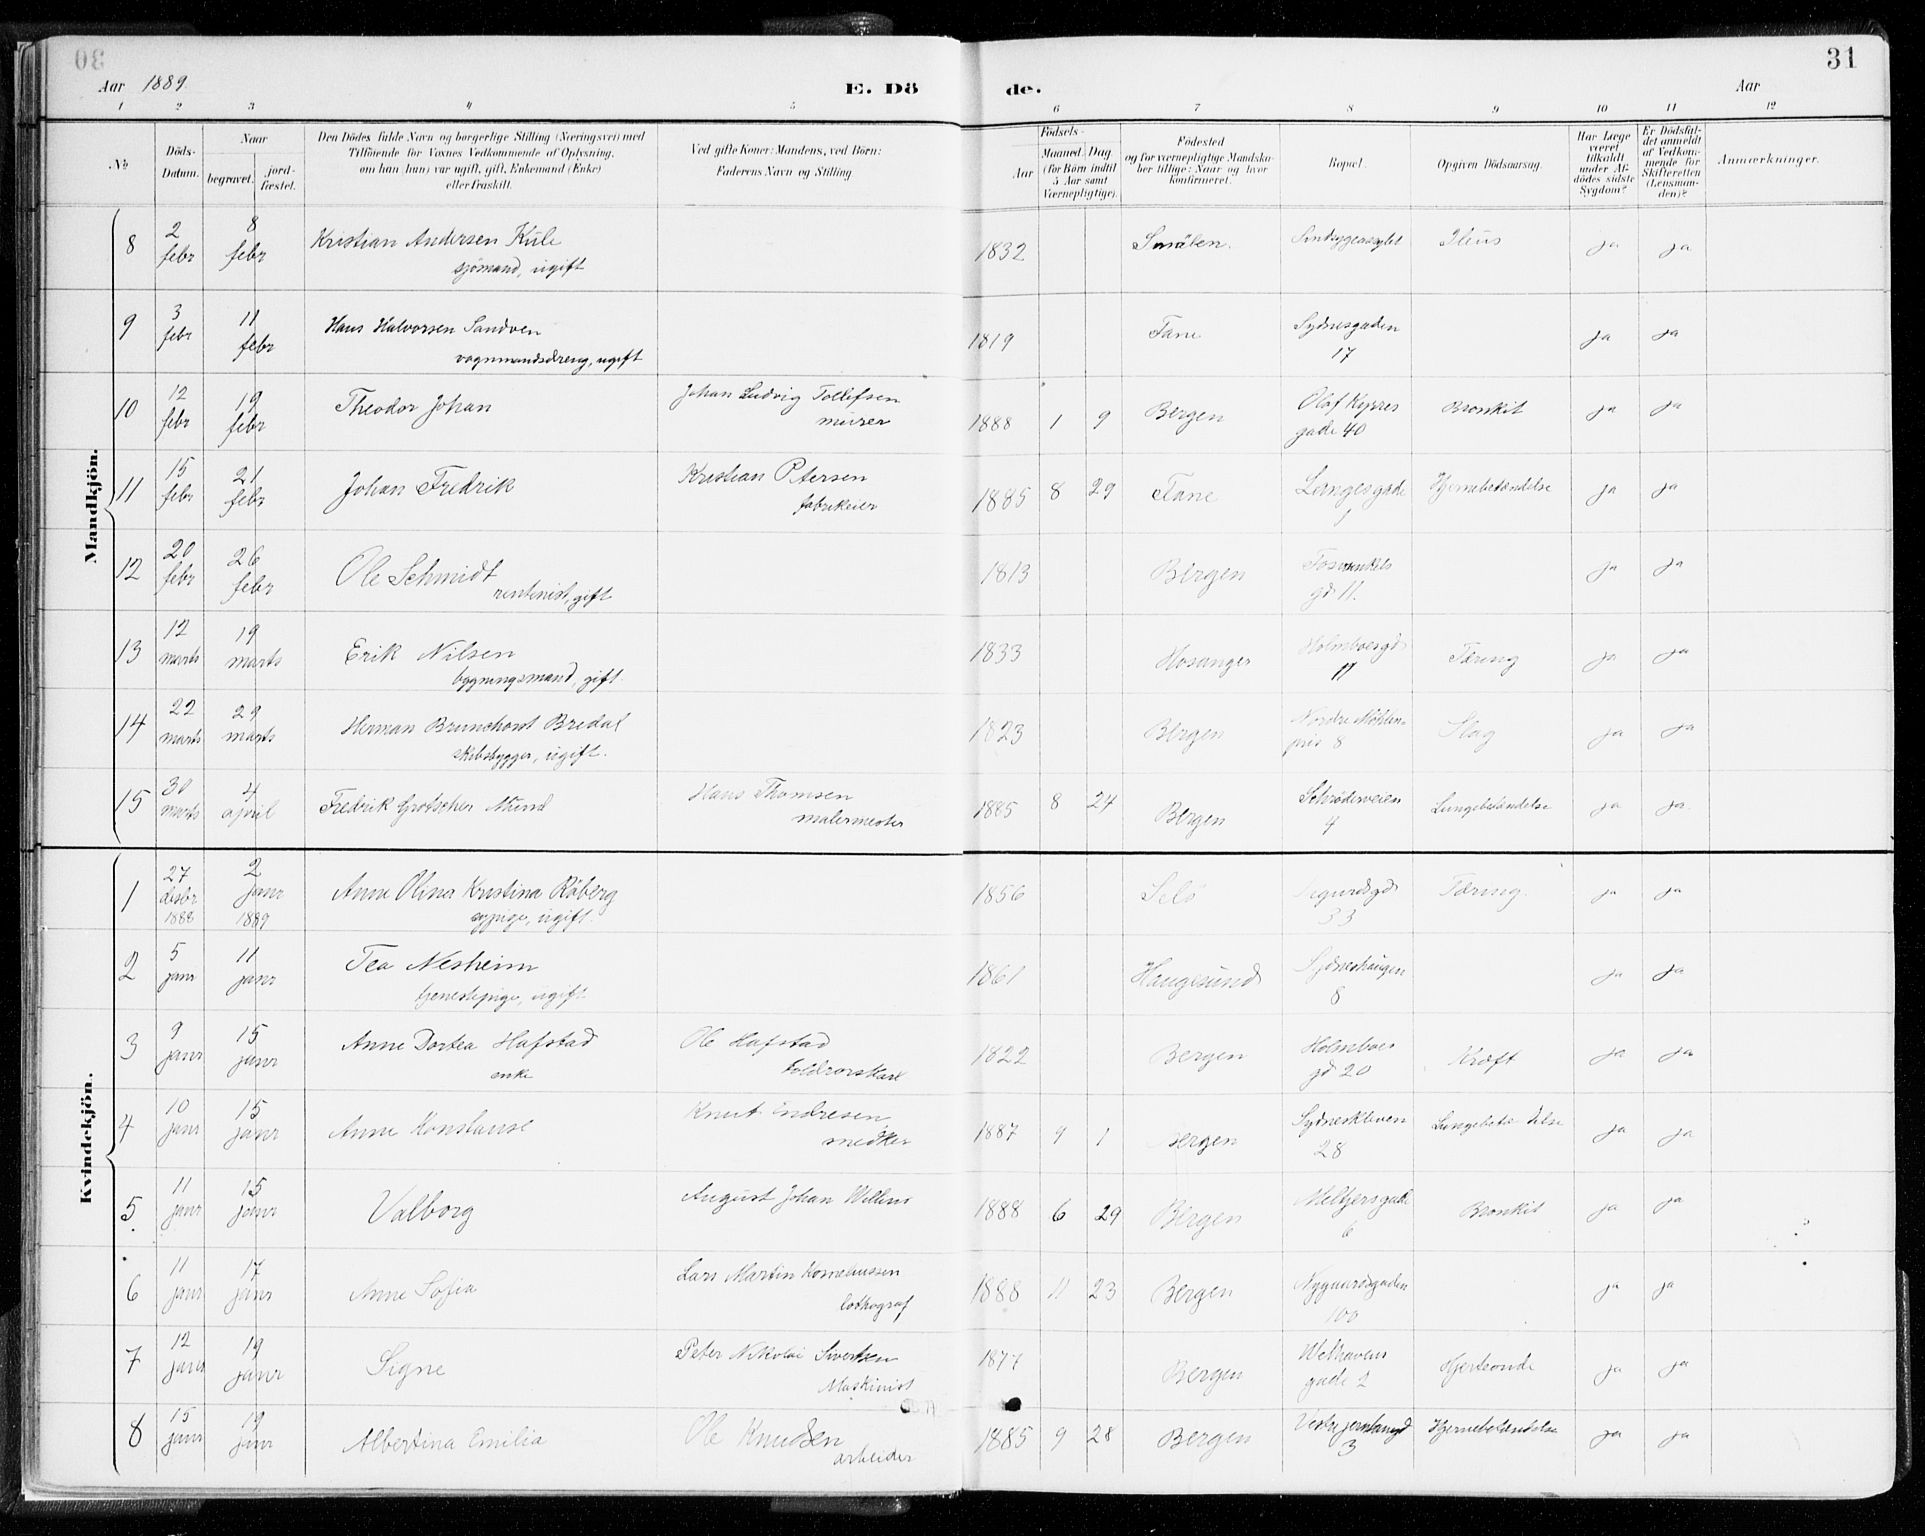 30
31
Aar 1889.
E. Dö de.
Aar
1 2 3 4 5 6 7 8 9 10 11 12
No
Döds-Datum.
Naar begravet. jord-fæstet.
Den Dödes fulde Navn og borgerlige Stilling (Næringsvei) med Tilföiende for Voxnes Vedkommende af Oplysning, om han (hun) var ugift, gift, Enkemand (Enke) eller fraskilt.
Ved gifte Koner: Mandens, ved Börn: Faderens Navn og Stilling.
Födsels-
Aar
Maaned. Dag (for Börn indtil 5 Aar samt Værnepligtige).
Födested og for værnepligtige Mandskaber tillige: Naar og hvor konfirmeret.
Bopæl.
Opgiven Dödsaarsag.
Har Læge været tilkaldt under Afdödes sidste Sygdom?
Er Dödsfaldet anmeldt af Vedkommende for Skifteretten (Lensmanden)?
Anmærkninger.
Mandkjön.
8 2 febr 8 febr Kristian Andersen Kule sjömand, ugift 1832 Småben. Sindsygeasylet Ileus ja ja
9 3 febr 11 febr Hans Halvorsen Sandven vognmandsdreng, ugift 1819 Fane Sydnesgaden 17 ja ja
10 12 febr 19 febr Theodor Johan Johan Ludvig Tollefsen murer 1888 1 9 Bergen Olaf Kyrres gade 40 Bronkit ja ja
11 15 febr 21 febr Johan Fredrik Kristian Petersen fabrikeier 1885 8 29 Fane Langesgade Hjernebetændelse ja ja
12 20 febr 26 febr Ole Schmidt rentenist, gift 1813 Bergen gd 11. ja ja
13 12 marts 19 marts Erik Nilsen bygningsmand, gift 1833 Hosanger Holmboesgd 17 Tæring ja ja
14 22 marts 29 marts Herman Brunchorst Bredal skibsbygger, ugift. 1823 Bergen Nordre Möhlenpris 8 Slag ja ja
15 30 marts 4 april Fredrik Grotscher Mund Hans Thomsen malermester 1885 8 24 Bergen Schröderveien 4 Lungebetændelse ja ja
Kvindekjön.
1 27 desbr 1888 2 janr 1889 Anne Olina Kristina Röberg sypige, ugift. 1856 Selö Sigurdsgd 33 Tæring. ja ja
2 5 janr 11 janr Tea Nesheim tjenestepige, ugift 1861 Haugesund Sydneshaugen 8 ja ja
3 9 janr 15 janr Anne Dortea Hafstad enke Ole Hafstad toldrorskarl 1822 Bergen Holmboes gd 20 Kræft ja ja
4 10 janr 15 janr Anne Konstanse Knut Endresen snedker 1887 9 1 Bergen Sydneskleven 28 ja ja
5 11 janr 15 janr Valborg August Johan Willens 1888 6 29 Bergen Meltzersgade 6 Bronkit ja ja
6 11 janr 17 janr Anne Sofia Lars Martin Korneliussen lithograf 1888 11 23 Bergen Nygaardsgaden 100 ja ja
7 12 janr 19 janr Signe Peter Nikolai Sivertsen Maskinist 1877 Bergen Welhavens gade 2 Hjerteonde ja ja
8 15 janr 19 janr Albertina Emilia Ole Knudsen arbeider 1885 9 28 Bergen 3 Hjernebetændelse ja ja